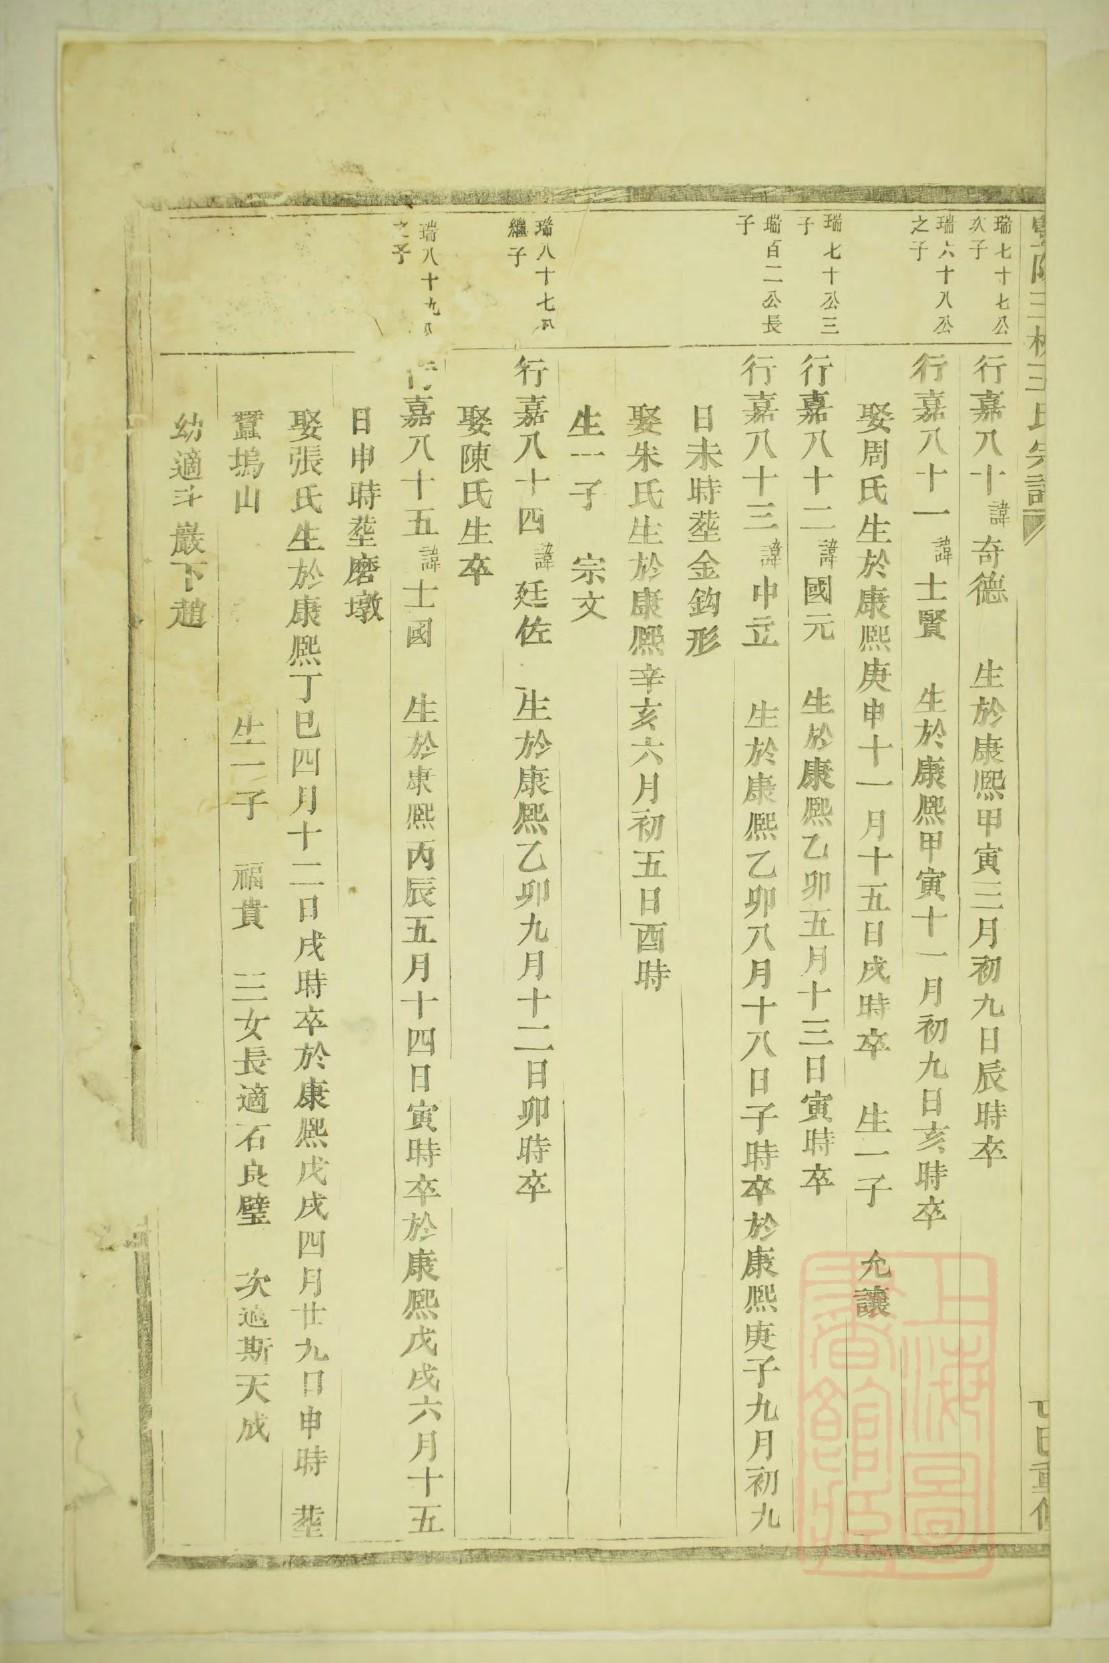 王氏宗譜
瑞七十七公
次子
行嘉八十 諱奇德 生於康熙甲寅三月初九日辰時卒
瑞六十八公
之子
行嘉八十一 諱士賢 生於康熙甲寅十一月初九日亥時卒
娶周氏生於康熙庚申十一月十五日戌時卒 生一子 允讓
瑞七十公三
子
行嘉八十二 諱國元 生於康熙乙卯五月十三日寅時卒
瑞百二公長
子
行嘉八十三 諱中立 生於康熙乙卯八月十八日子時卒於康熙庚子九月初九
日未時塟金鈎形
娶朱氏生於康熙辛亥六月初五日酉時
生一子 宗文
瑞八十七公
繼子
行嘉八十四 諱廷佐 生於康熙乙卯九月十二日卯時卒
娶陳氏生卒
瑞八十九公
之子
行嘉八十五 諱士國 生於康熙丙辰五月十四日寅時卒於康熙戊戌六月十五
日申時塟磨墩
娶張氏生於康熙丁巳四月十二日戌時卒於康熙戊戌四月廿九日申時 塟
蠶塢山 生一子 福貴 三女長適石良璧 次適斯天成
幼適斗巖下趙
上海圖
書館藏